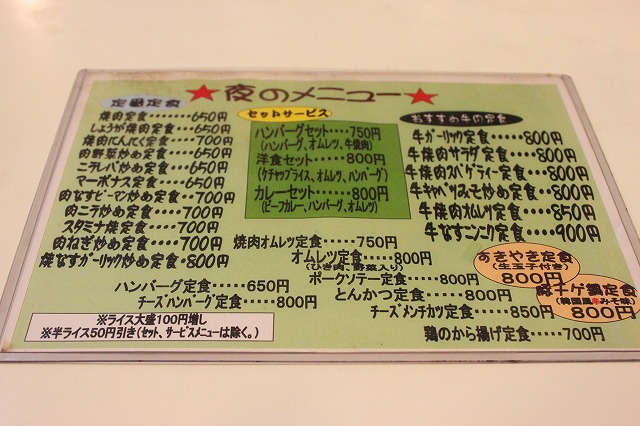 ★夜のメニュー★
定番定食
焼肉定食・・・・・650円
しょうが焼肉定食・・・・650円
焼肉にんにく定食・・・700円
肉野菜炒め定食・・・650円
ニラレバ炒め定食・・・650円
マーボナス定食・・・・650円
肉なすピーマン炒め定食・・・700円
肉ニラ炒め定食・・・・700円
スタミナ焼定食・・・・700円
肉ねぎ炒め定食・・・・700円
焼なすガーリック炒め定食・・800円
セットサービス
ハンバーグセット・・・・750円
(ハンバーグ、オムレツ、牛焼肉)
洋食セット・・・・・800円
(ケチャップライス、オムレツ、ハンバーグ)
カレーセット・・・・・800円
(ビーフカレー、ハンバーグ、オムレツ)
おすすめ牛肉定食
牛ガーリック定食・・・・・800円
牛焼肉サラダ定食・・・・800円
牛焼肉スパゲティー定食・・・800円
牛キャベツみそ炒め定食・・・800円
牛焼肉オムレツ定食・・・・850円
牛なすニンニク定食・・・・900円
焼肉オムレツ定食・・・・750円
オムレツ定食・・・・・800円
(ひき肉、野菜入り)
ポークソテー定食・・・・800円
とんかつ定食・・・・・800円
チーズメンチカツ定食・・・・・850円
鶏のから揚げ定食・・・・・700円
ハンバーグ定食・・・・650円
チーズハンバーグ定食・・・・800円
すきやき定食
(生玉子付き)
800円
豚チゲ鍋定食
(韓国風辛みそ味)
800円
※ライス大盛100円増し
※半ライス50円引き(セット、サービスメニューは除く。)